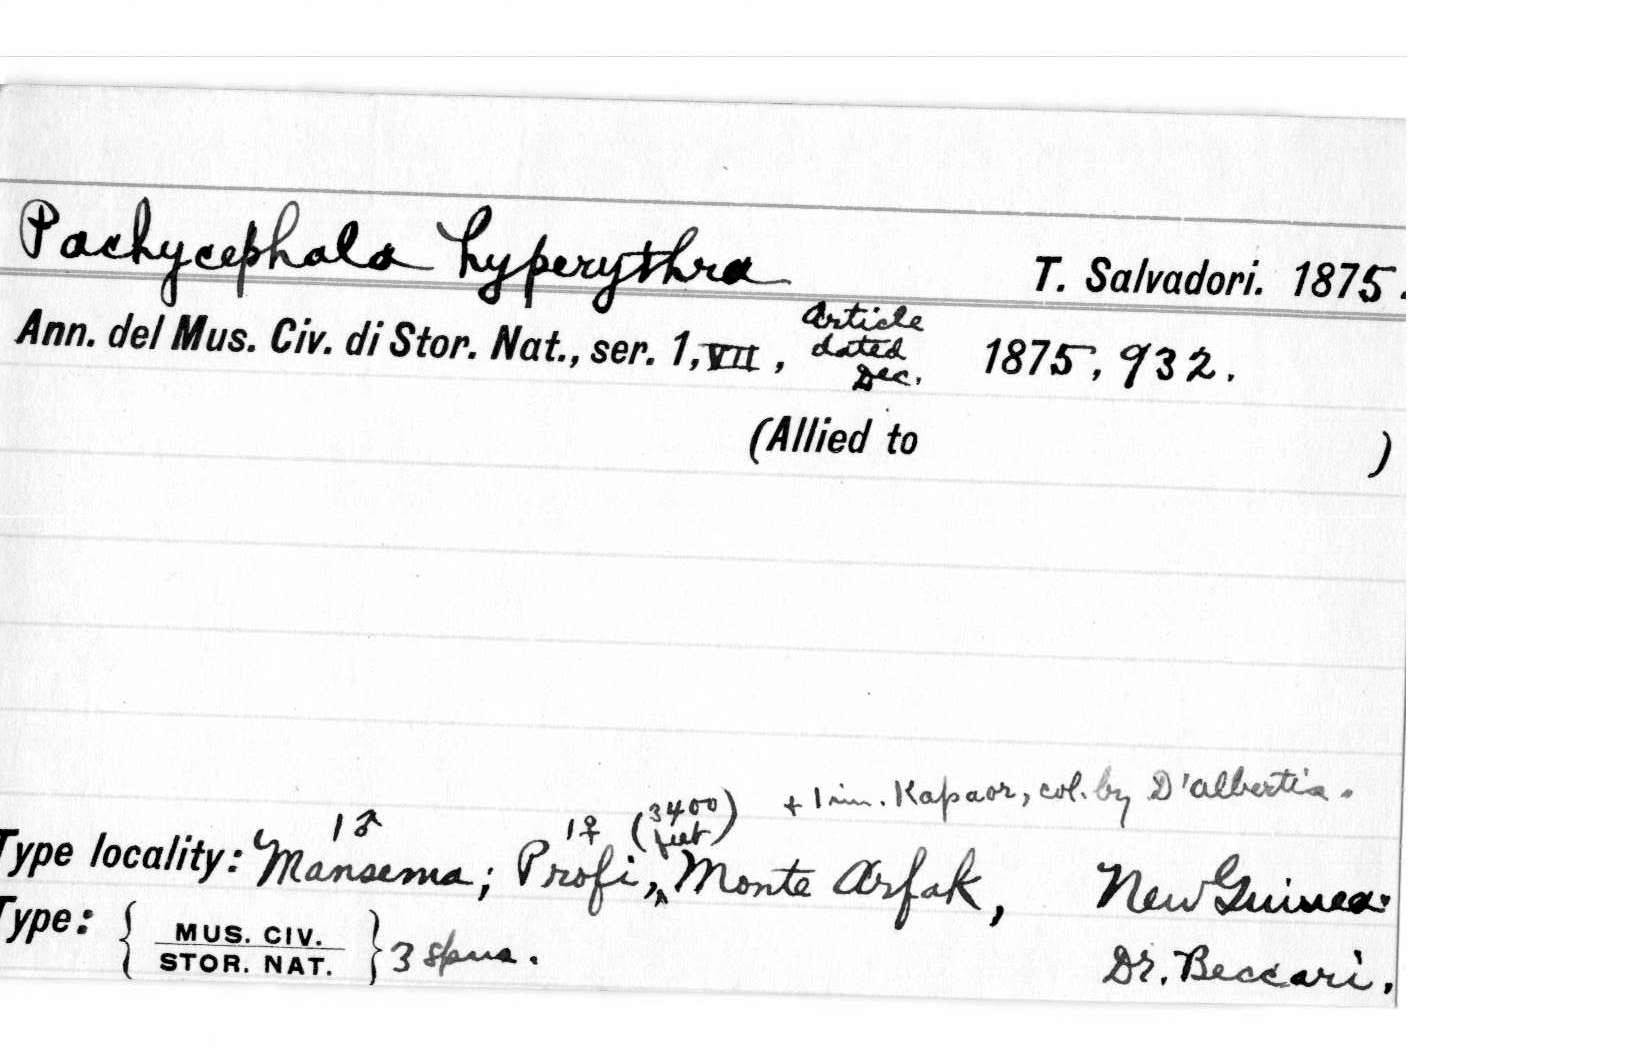 Pachycephala hyperythra T. Salvadori. 1875.
Ann. del Mus. Civ. di Stor. Nat., ser. 1, VII, Article dated Dec. 1875, 932.
(Allied to )
+ 1 im. Kapaor, col. by D'albertis.
1♂ 1♀ (3400 feet)
Type locality: Mansema; Profi, Monte Arfak, New Guinea.
Type: { MUS. CIV. STOR. NAT. } 3 spms. Dr. Beccari.